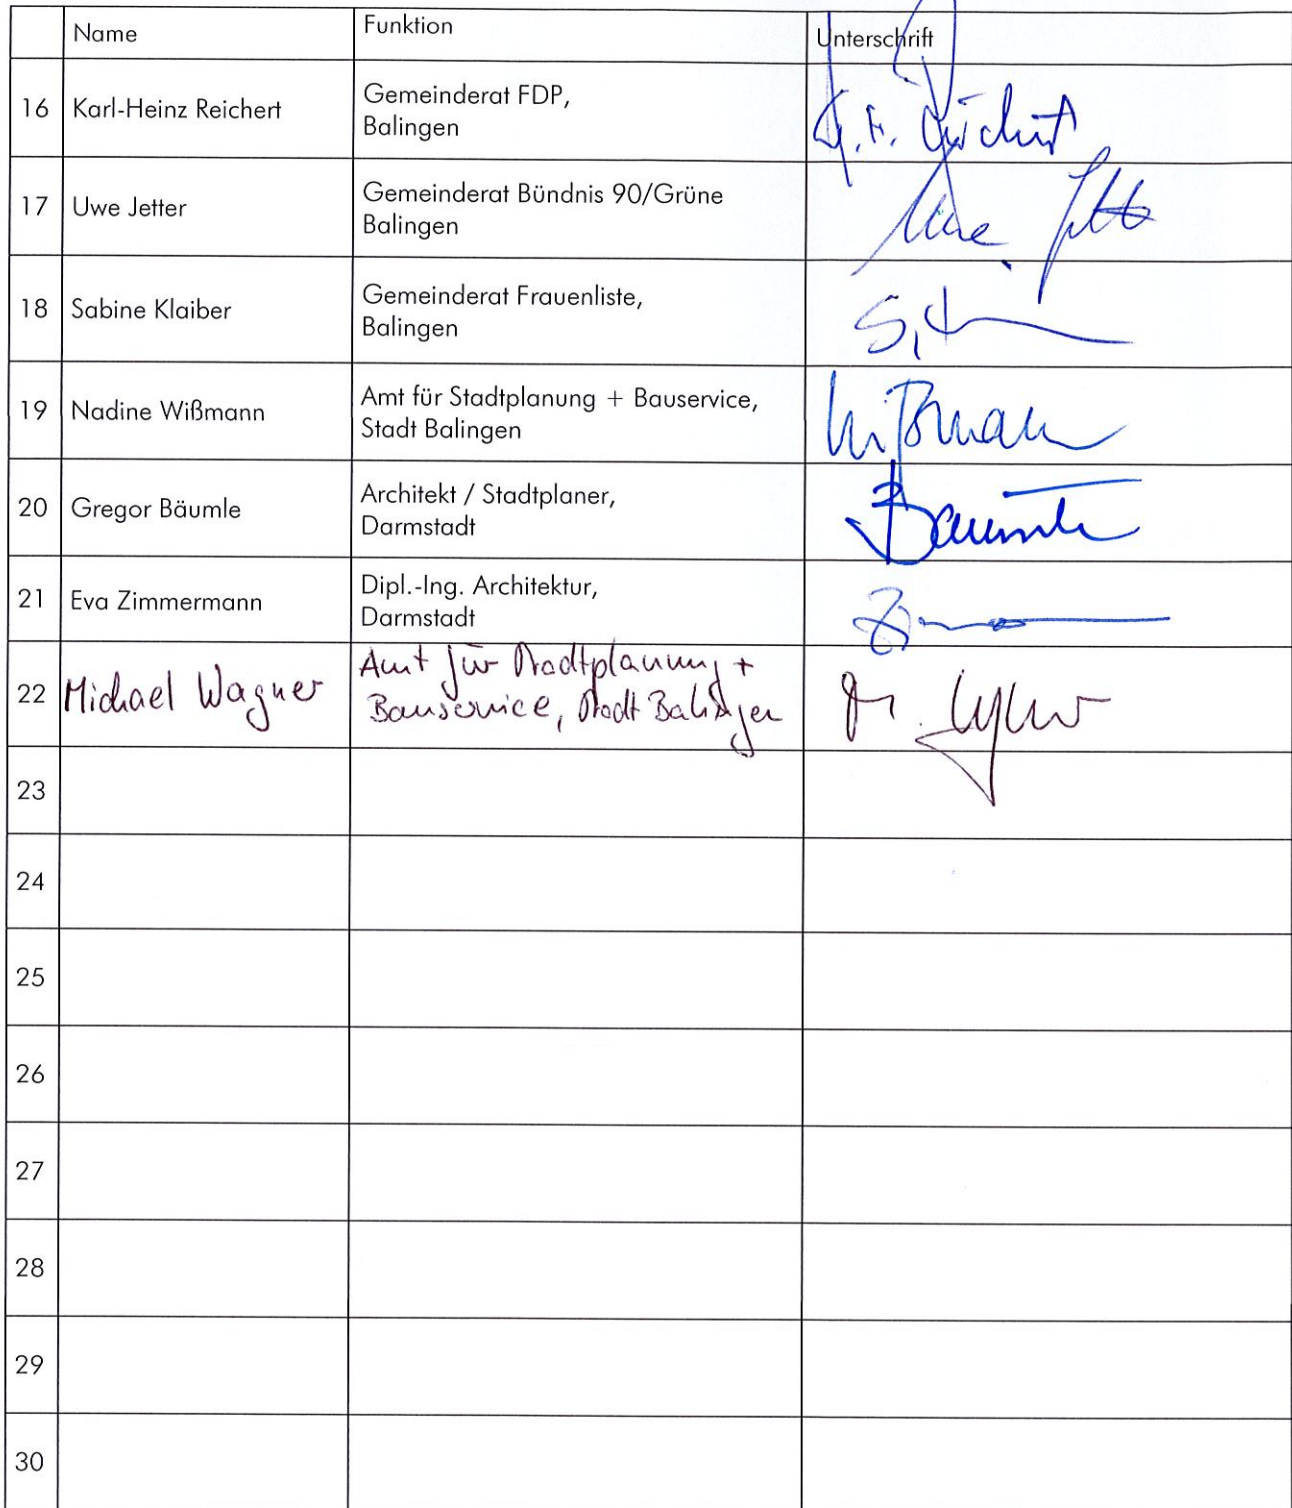 Name Funktion Unterschrift
16 Karl-Heinz Reichert Gemeinderat FDP,
Balingen
17 Uwe Jetter Gemeinderat Bündnis 90/Grüne
Balingen
18 Sabine Klaiber Gemeinderat Frauenliste,
Balingen
19 Nadine Wißmann Amt für Stadtplanung + Bauservice,
Stadt Balingen
20 Gregor Bäumle Architekt / Stadtplaner,
Darmstadt
21 Eva Zimmermann Dipl.-Ing. Architektur,
Darmstadt
22 Michael Wagner Amt für Stadtplanung +
Bauservice, Stadt Balingen
23
24
25
26
27
28
29
30